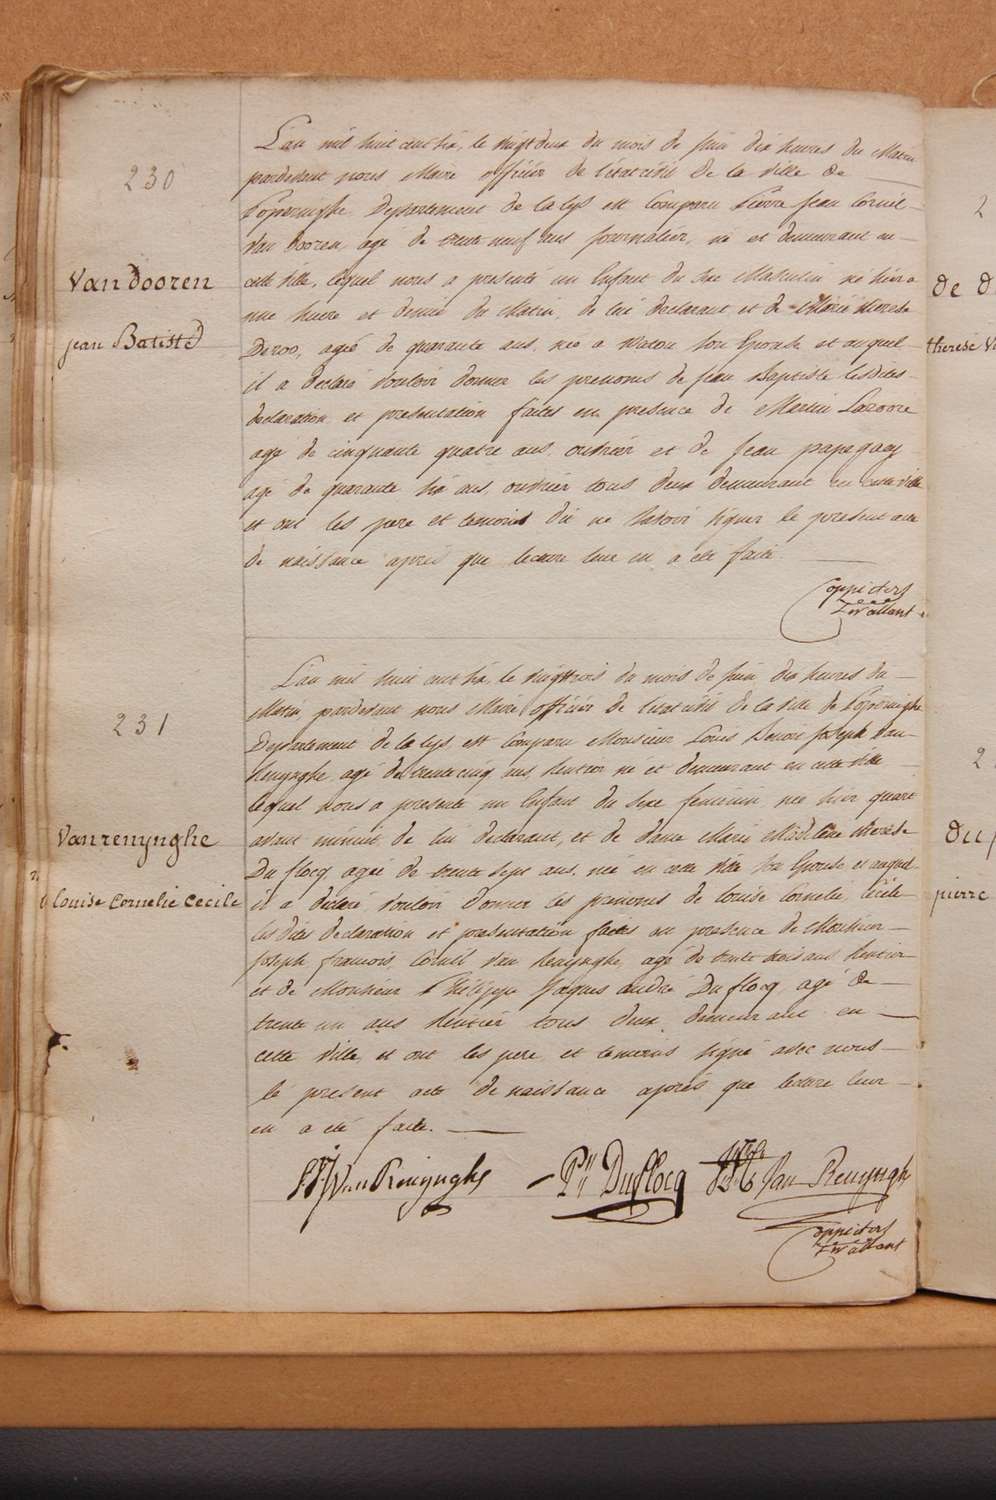 230
Van dooren
jean Batiste
L'an mil huit cent six, le vingt deux du mois de Juin dix heures du Matin
pardevant nous Maire officier de l'etat civil de la ville de
Poperinghe Departement de la lys est Comparu Pierre Jean Corneil
Van dooren agé de trente neuf ans journalier, né et demeurant en
cette ville, lequel nous a presenté un Enfant du sexe Masculin né hier a
une heure et demie du Matin, de lui declarant et de Marie therese
Deroo, agée de quarante ans, née a Watou son Epouse et auquel
il a declaré vouloir donner les prenoms de Jean Baptiste lesdites
declaration et presentation faites en presence de Martin
agé de cinquante quatre ans, ouvrier et de Jean papegaey
agé de quarante six ans, ouvrier tous deux demeurant en cette ville
et ont les pere et temoins dit ne savoir signer le present acte
de naissance après que lecture leur en a été faite.
231
Vanrenynghe
Louise Cornelie Cecile
L'an mil huit cent six, le vingt trois du mois de Juin dix heures du
Matin, pardevant nous Maire officier de l'etat civil de la ville de Poperinghe
Departement de la lys, est Comparu Monsieur Louis Joseph Van
Renynghe, agé de trente cinq ans, Rentier né et demeurant en cette ville
lequel nous a presenté un Enfant du sexe feminin, née hier quart
avant minuit, de lui declarant, et de dame Marie Madelaine therese
Du flocq agée de trente sept ans, née en cette ville son Epouse et auquel
il a declaré vouloir donner les prenoms de Louise Cornelie Cécile
lesdites declaration et presentation faites en presence de Monsieur
Joseph françois, Corneil Van Renynghe, agé de trente trois ans Rentier
et de Monsieur Philippe Jacques andré Du flocq agé de
trente un ans Rentier tous deux demeurant en
cette ville, et ont les pere et temoins signé avec nous
le present acte de naissance après que lecture leur
en a été faite.
Van Renynghe
Duflocq
Van Renyngh
de d
therese V
pierre